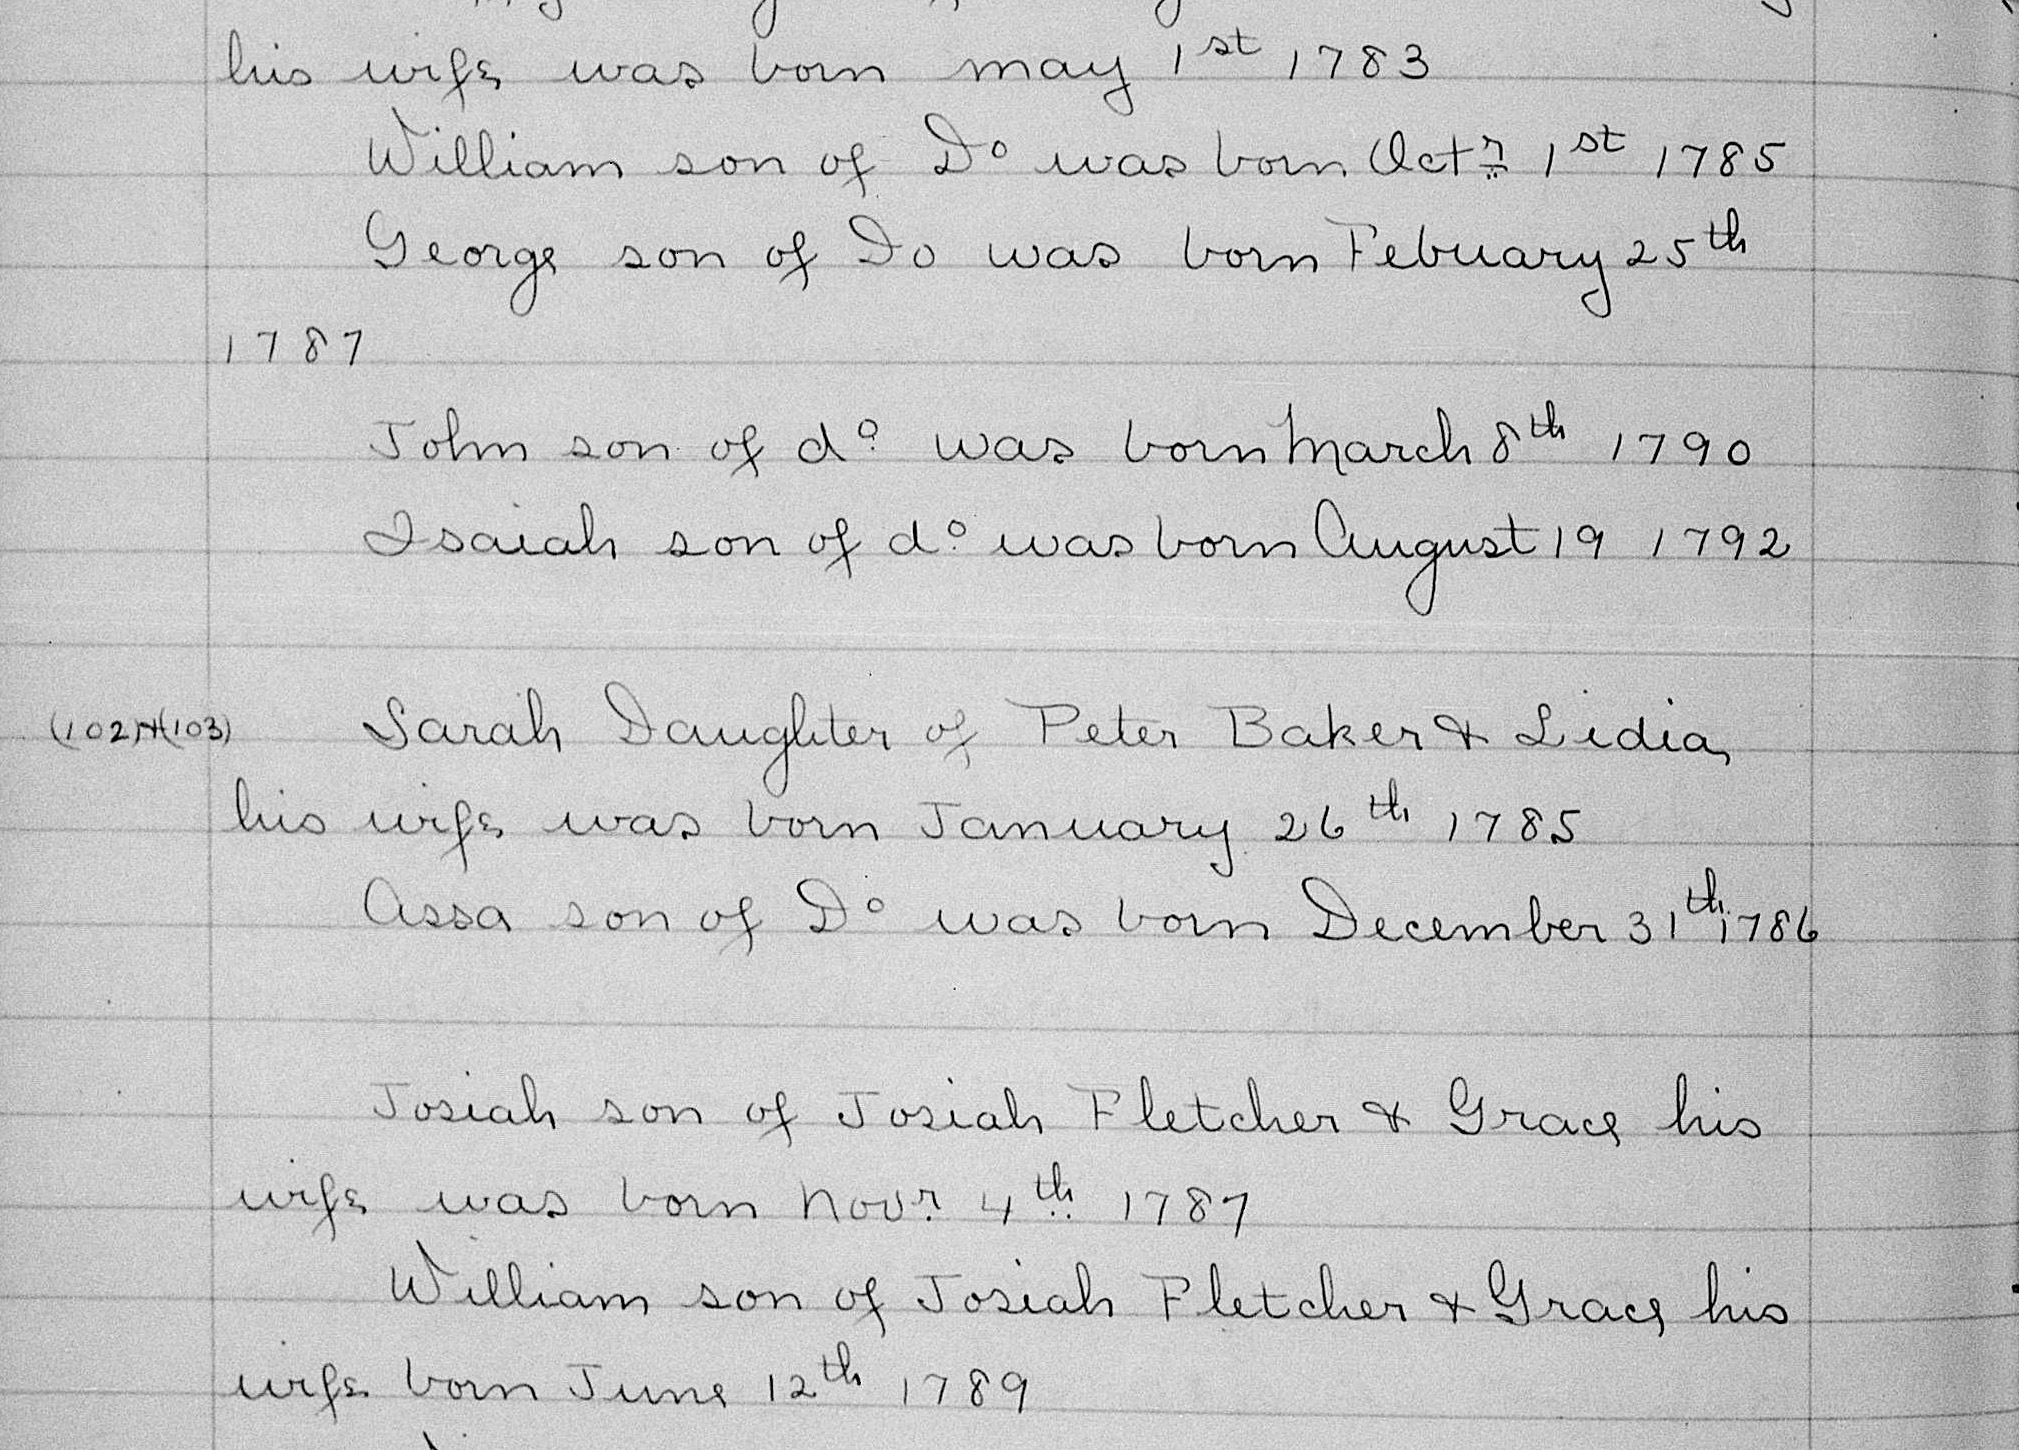 his wife was born may 1st 1783
William son of Do was born Octr 1st 1785
George son of Do was born Febuary 25th
1787
John son of do was born March 8th 1790
Isaiah son of do was born August 19 1792
(102)+(103) Sarah Daughter of Peter Baker & Lidia
his wife was born January 26th 1785
Assa son of Do was born December 31th 1786
Josiah son of Josiah Fletcher & Grace his
wife was born Novr 4th 1787
William son of Josiah Fletcher & Grace his
wife born June 12th 1789